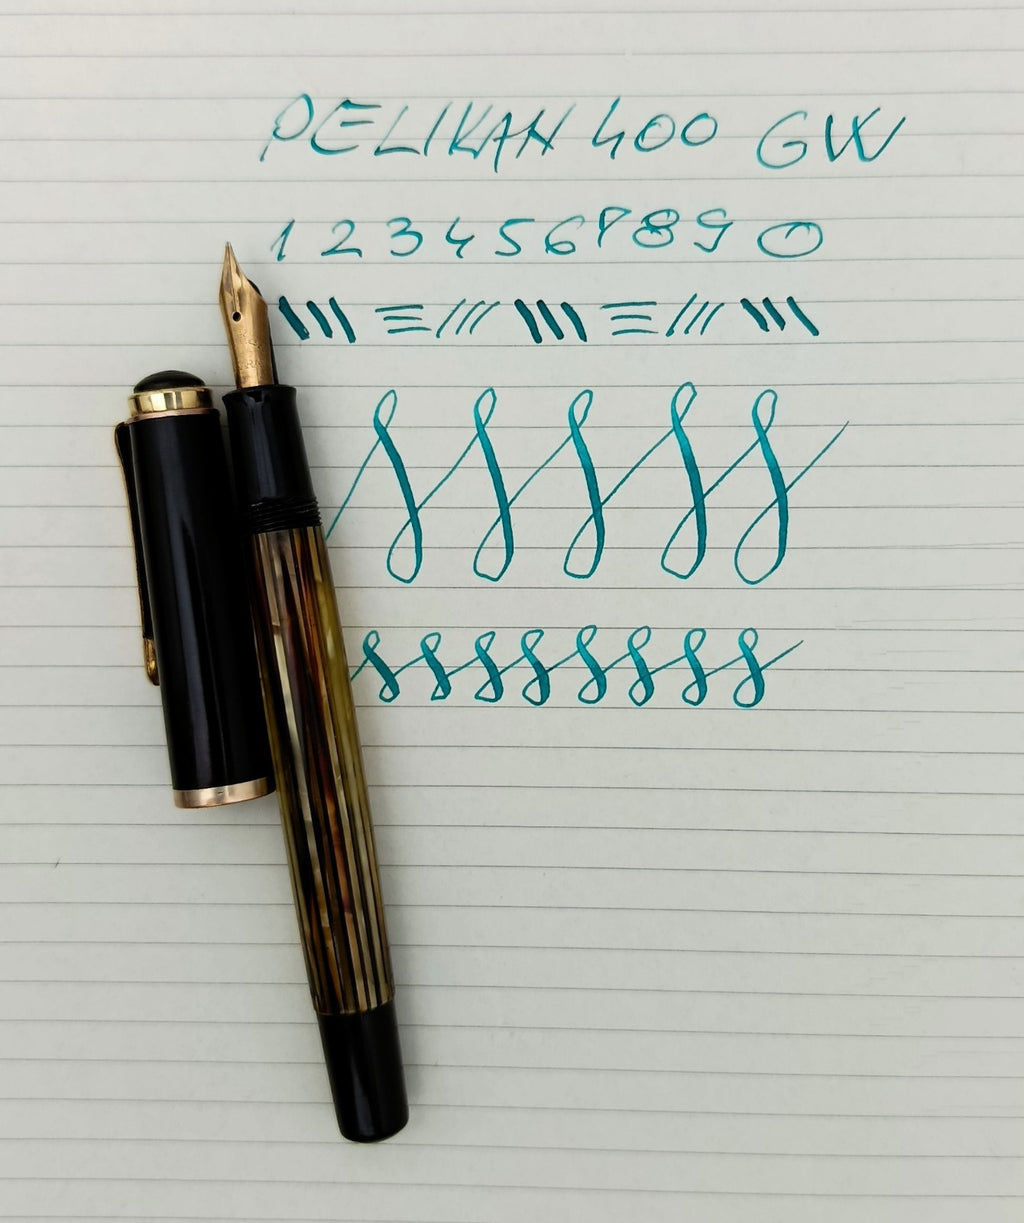 PELIKAN 400 GW
1 2 3 4 5 6 7 8 9 0